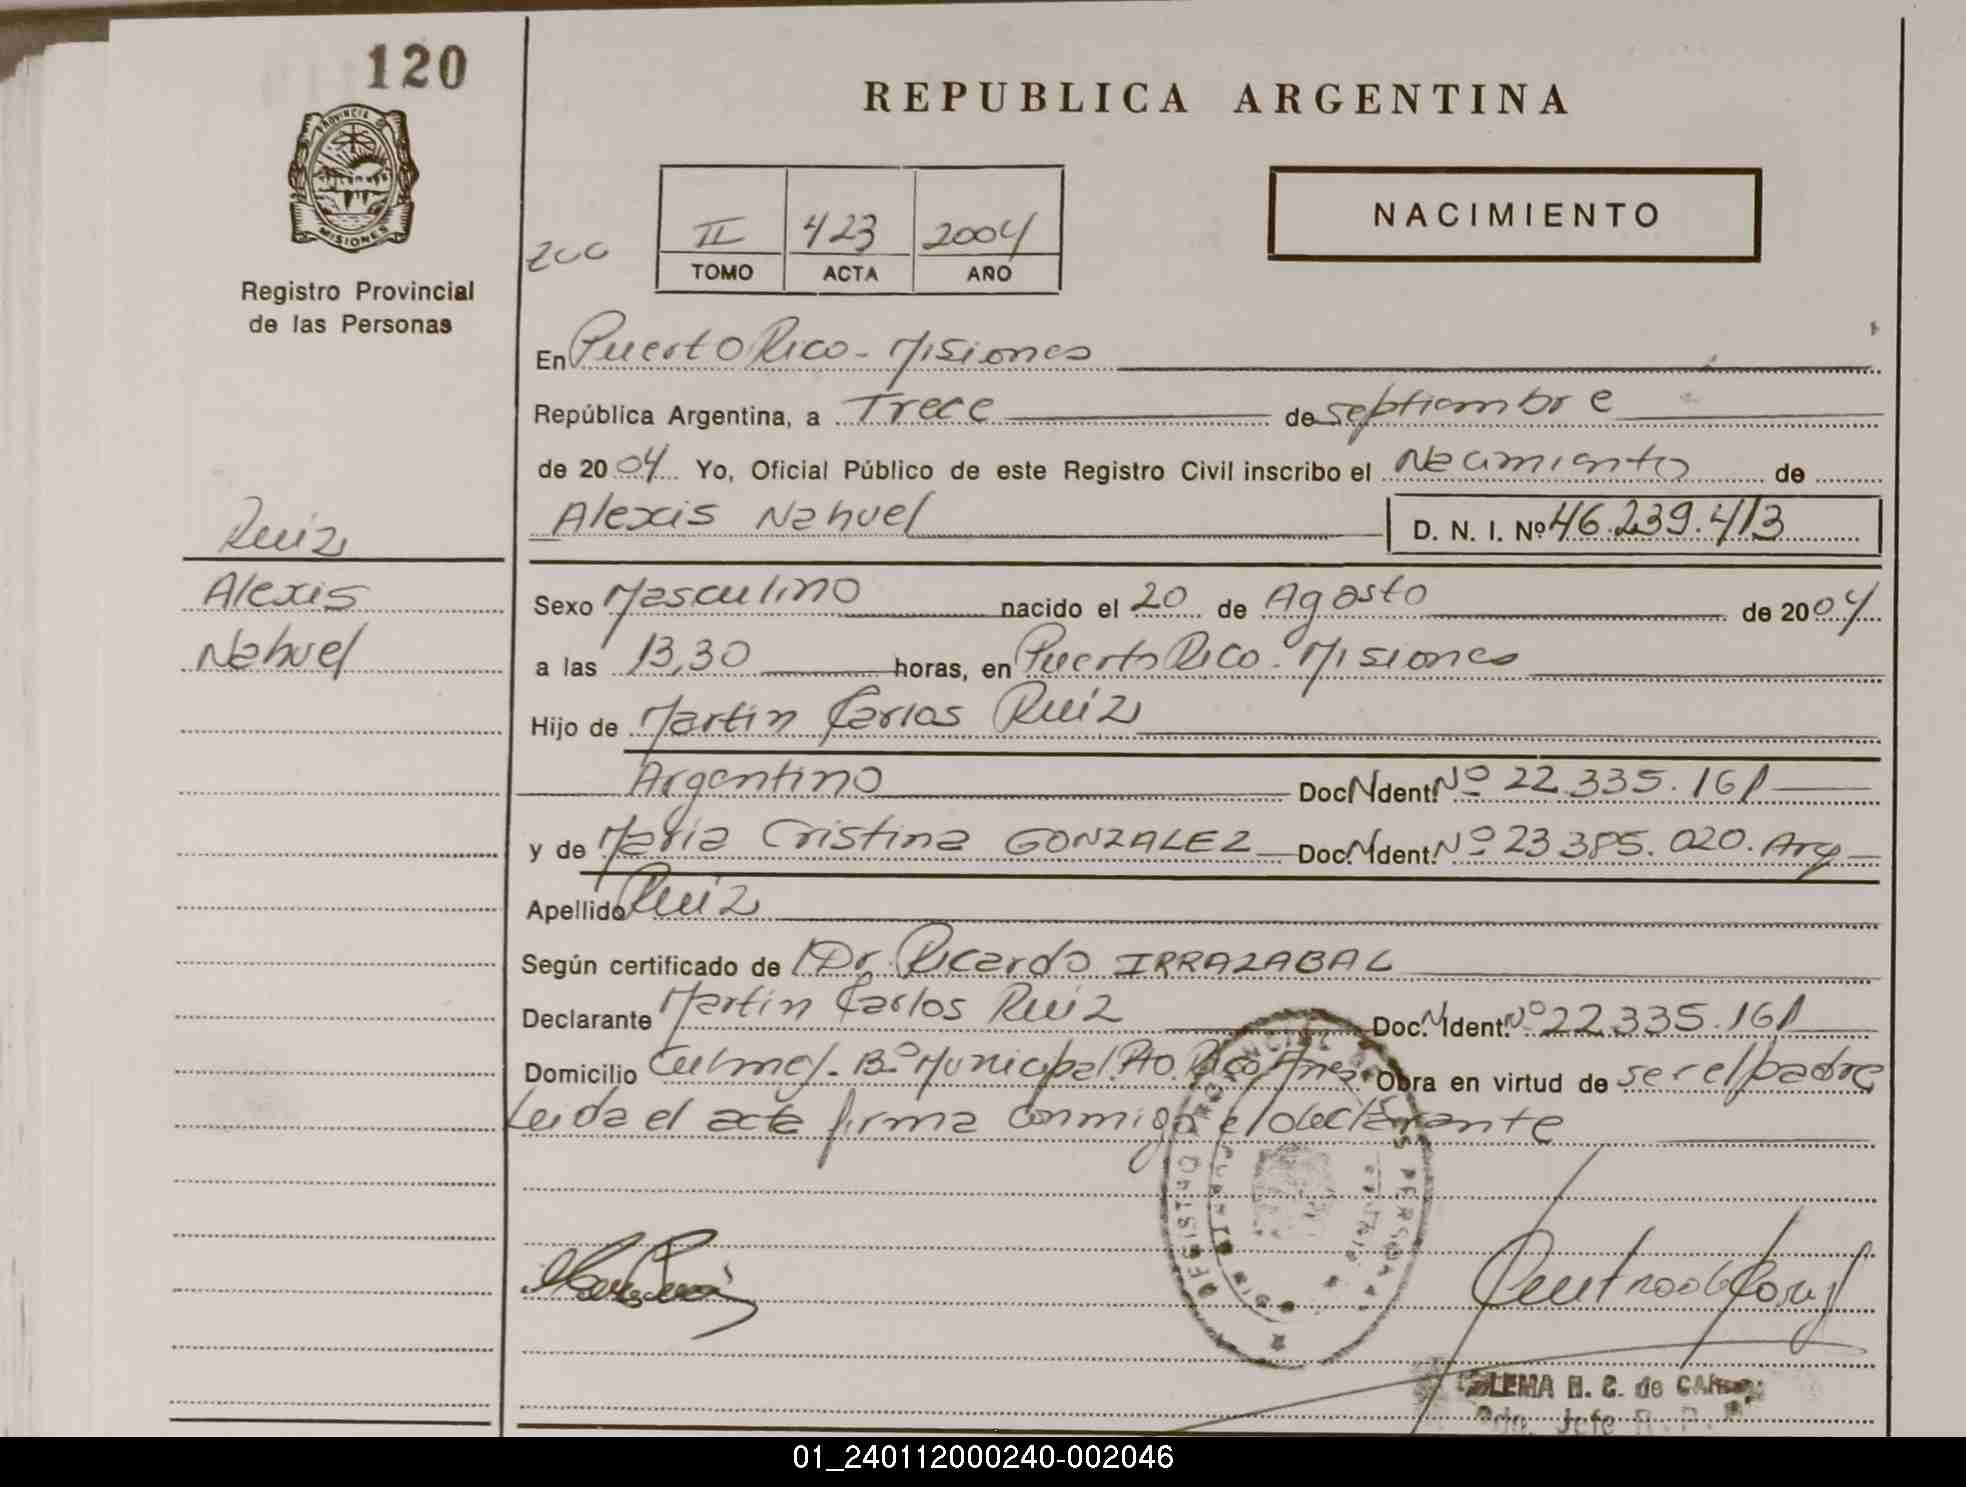 120
REPUBLICA ARGENTINA
PROVINCIA DE
MISIONES
Registro Provincial
de las Personas
200
II 423 2004
TOMO ACTA AÑO
NACIMIENTO
En Puerto Rico - Misiones
República Argentina, a Trece de septiembre
de 2004 Yo, Oficial Público de este Registro Civil inscribo el Nacimiento de
Alexis Nahuel D. N. I. Nº 46.239.413
Ruiz
Alexis
Nahuel
Sexo Masculino nacido el 20 de Agosto de 2004
a las 13,30 horas, en Puerto Rico. Misiones
Hijo de Martín Carlos Ruíz
Argentino Doc. N Ident. Nº 22.335.161
y de María Cristina GONZALEZ Doc. N Ident. Nº 23.385.020. Arg
Apellido Ruíz
Según certificado de Dr. Ricardo IRRAZABAL
Declarante Martín Carlos Ruíz Doc. N Ident. Nº 22.335.161
Domicilio Culmey. Bº Municipal. Pto. Rico, Mnes. Obra en virtud de ser el padre
Leída el acta firma conmigo el declarante
R. C. de
Jefe R. P.
01_240112000240-002046